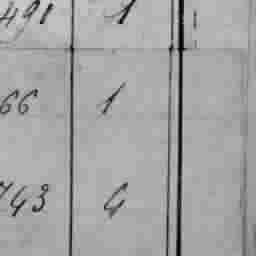 491 1
66 1
743 G